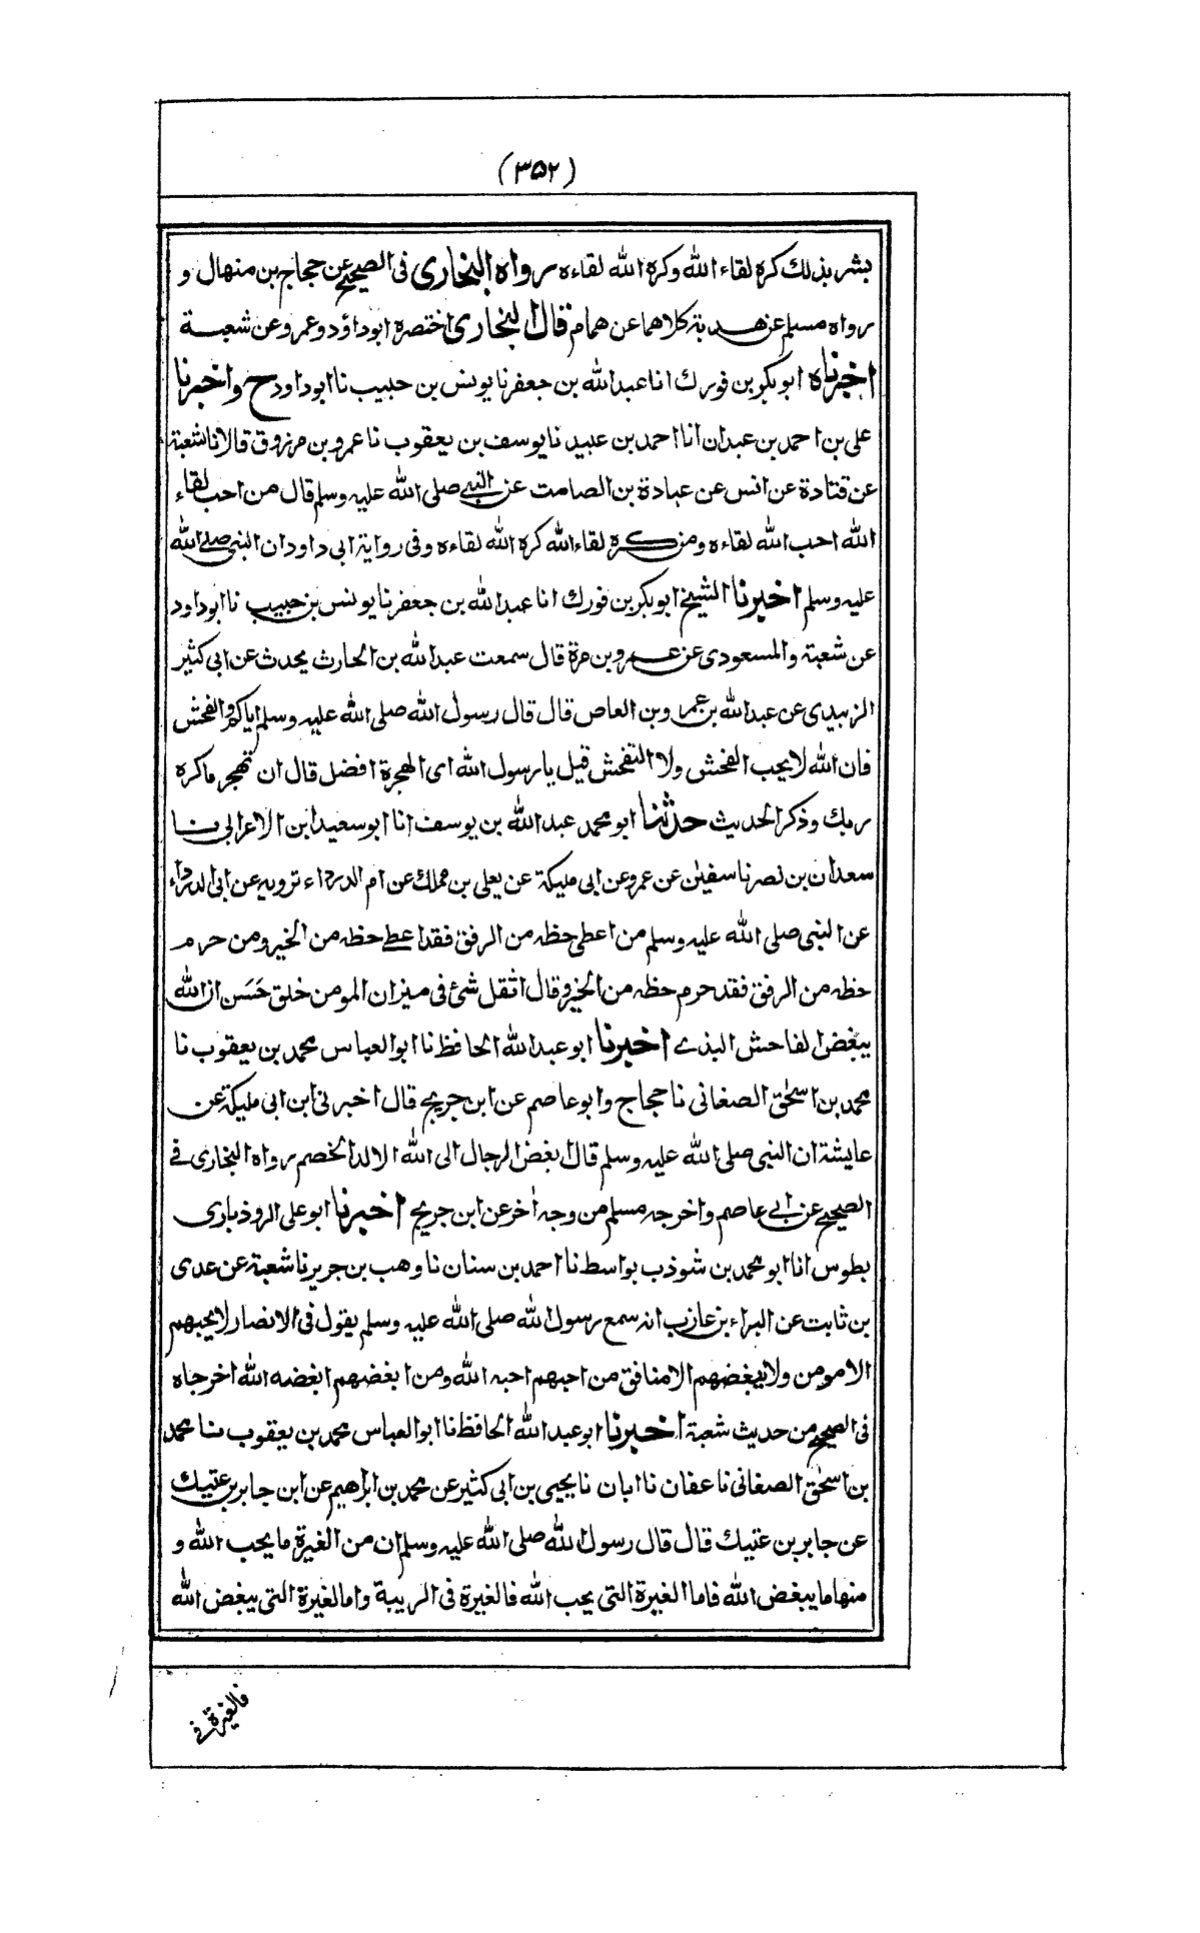 (۳۵۲)
بشر بذلك كره لقاء الله وكره الله لقاءه رواه البخاري فى الصحيح عن حجاج بن منهال و
رواه مسلم عن هدبة كلاهما عن همام قال البخاري اختصره ابوداؤد وعمرو عن شعبة
اخبرناه ابوبكر بن فورك انا عبدالله بن جعفر نا يونس بن حبيب نا ابوداود ح واخبرنا
على بن احمد بن عبدان انا احمد بن عبيد نا يوسف بن يعقوب نا عمرو بن مرزوق قالا نا شعبة
عن قتادة عن انس عن عبادة بن الصامت عن النبى صلى الله عليه وسلم قال من احب لقاء
الله احب الله لقاءه ومن كره لقاء الله كره الله لقاءه وفى رواية ابى داود ان النبى صلى الله
عليه وسلم اخبرنا الشيخ ابوبكر بن فورك انا عبدالله بن جعفر نا يونس بن حبيب نا ابوداود
عن شعبة والمسعودى عن عمرو بن مرة قال سمعت عبدالله بن الحارث يحدث عن ابى كثير
الزبيدى عن عبدالله بن عمرو بن العاص قال قال رسول الله صلى الله عليه وسلم اياكم والفحش
فان الله لا يحب الفحش ولا التفحش قيل يا رسول الله اى الهجرة افضل قال ان تهجر ما كره
ربك وذكر الحديث حدثنا ابو محمد عبدالله بن يوسف انا ابو سعيد ابن الاعرابى نا
سعدان بن نصر نا سفيٰن عن عمرو عن ابى مليكة عن يعلى بن مملك عن ام الدرداء ترويه عن ابى الدرداء
عن النبى صلى الله عليه وسلم من اعطى حظه من الرفق فقد اعطى حظه من الخير ومن حرم
حظه من الرفق فقد حرم حظه من الخير وقال اثقل شئ فى ميزان المومن خلق حَسَن ان الله
يبغض الفاحش البذى اخبرنا ابو عبدالله الحافظ نا ابوالعباس محمد بن يعقوب نا
محمد بن اسحٰق الصغانى نا حجاج وابو عاصم عن ابن جريج قال اخبرنى ابن ابى مليكة عن
عايشة ان النبى صلى الله عليه وسلم قال ابغض الرجال الى الله الالد الخصم رواه البخارى فى
الصحيح عن ابى عاصم واخرجه مسلم من وجه اٰخر عن ابن جريج اخبرنا ابو على الروذبارى
بطوس انا ابو محمد بن شوذب بواسط نا احمد بن سنان نا وهب بن جرير نا شعبة عن عدى
بن ثابت عن البراء بن عازب انه سمع رسول الله صلى الله عليه وسلم يقول فى الانصار لا يحبهم
الا مومن ولا يبغضهم الا منافق من احبهم احبه الله ومن ابغضهم ابغضه الله اخرجاه
فى الصحيح من حديث شعبة اخبرنا ابو عبدالله الحافظ نا ابوالعباس محمد بن يعقوب نا محمد
بن اسحٰق الصغانى نا عفان نا ابان نا يحيى بن ابى كثير عن محمد بن ابراهيم عن ابن جابر بن عتيك
عن جابر بن عتيك قال قال رسول الله صلى الله عليه وسلم ان من الغيرة ما يحب الله و
منها ما يبغض الله فاما الغيرة التى يحب الله فالغيرة فى الريبة واما الغيرة التى يبغض الله
فالغيرة فى